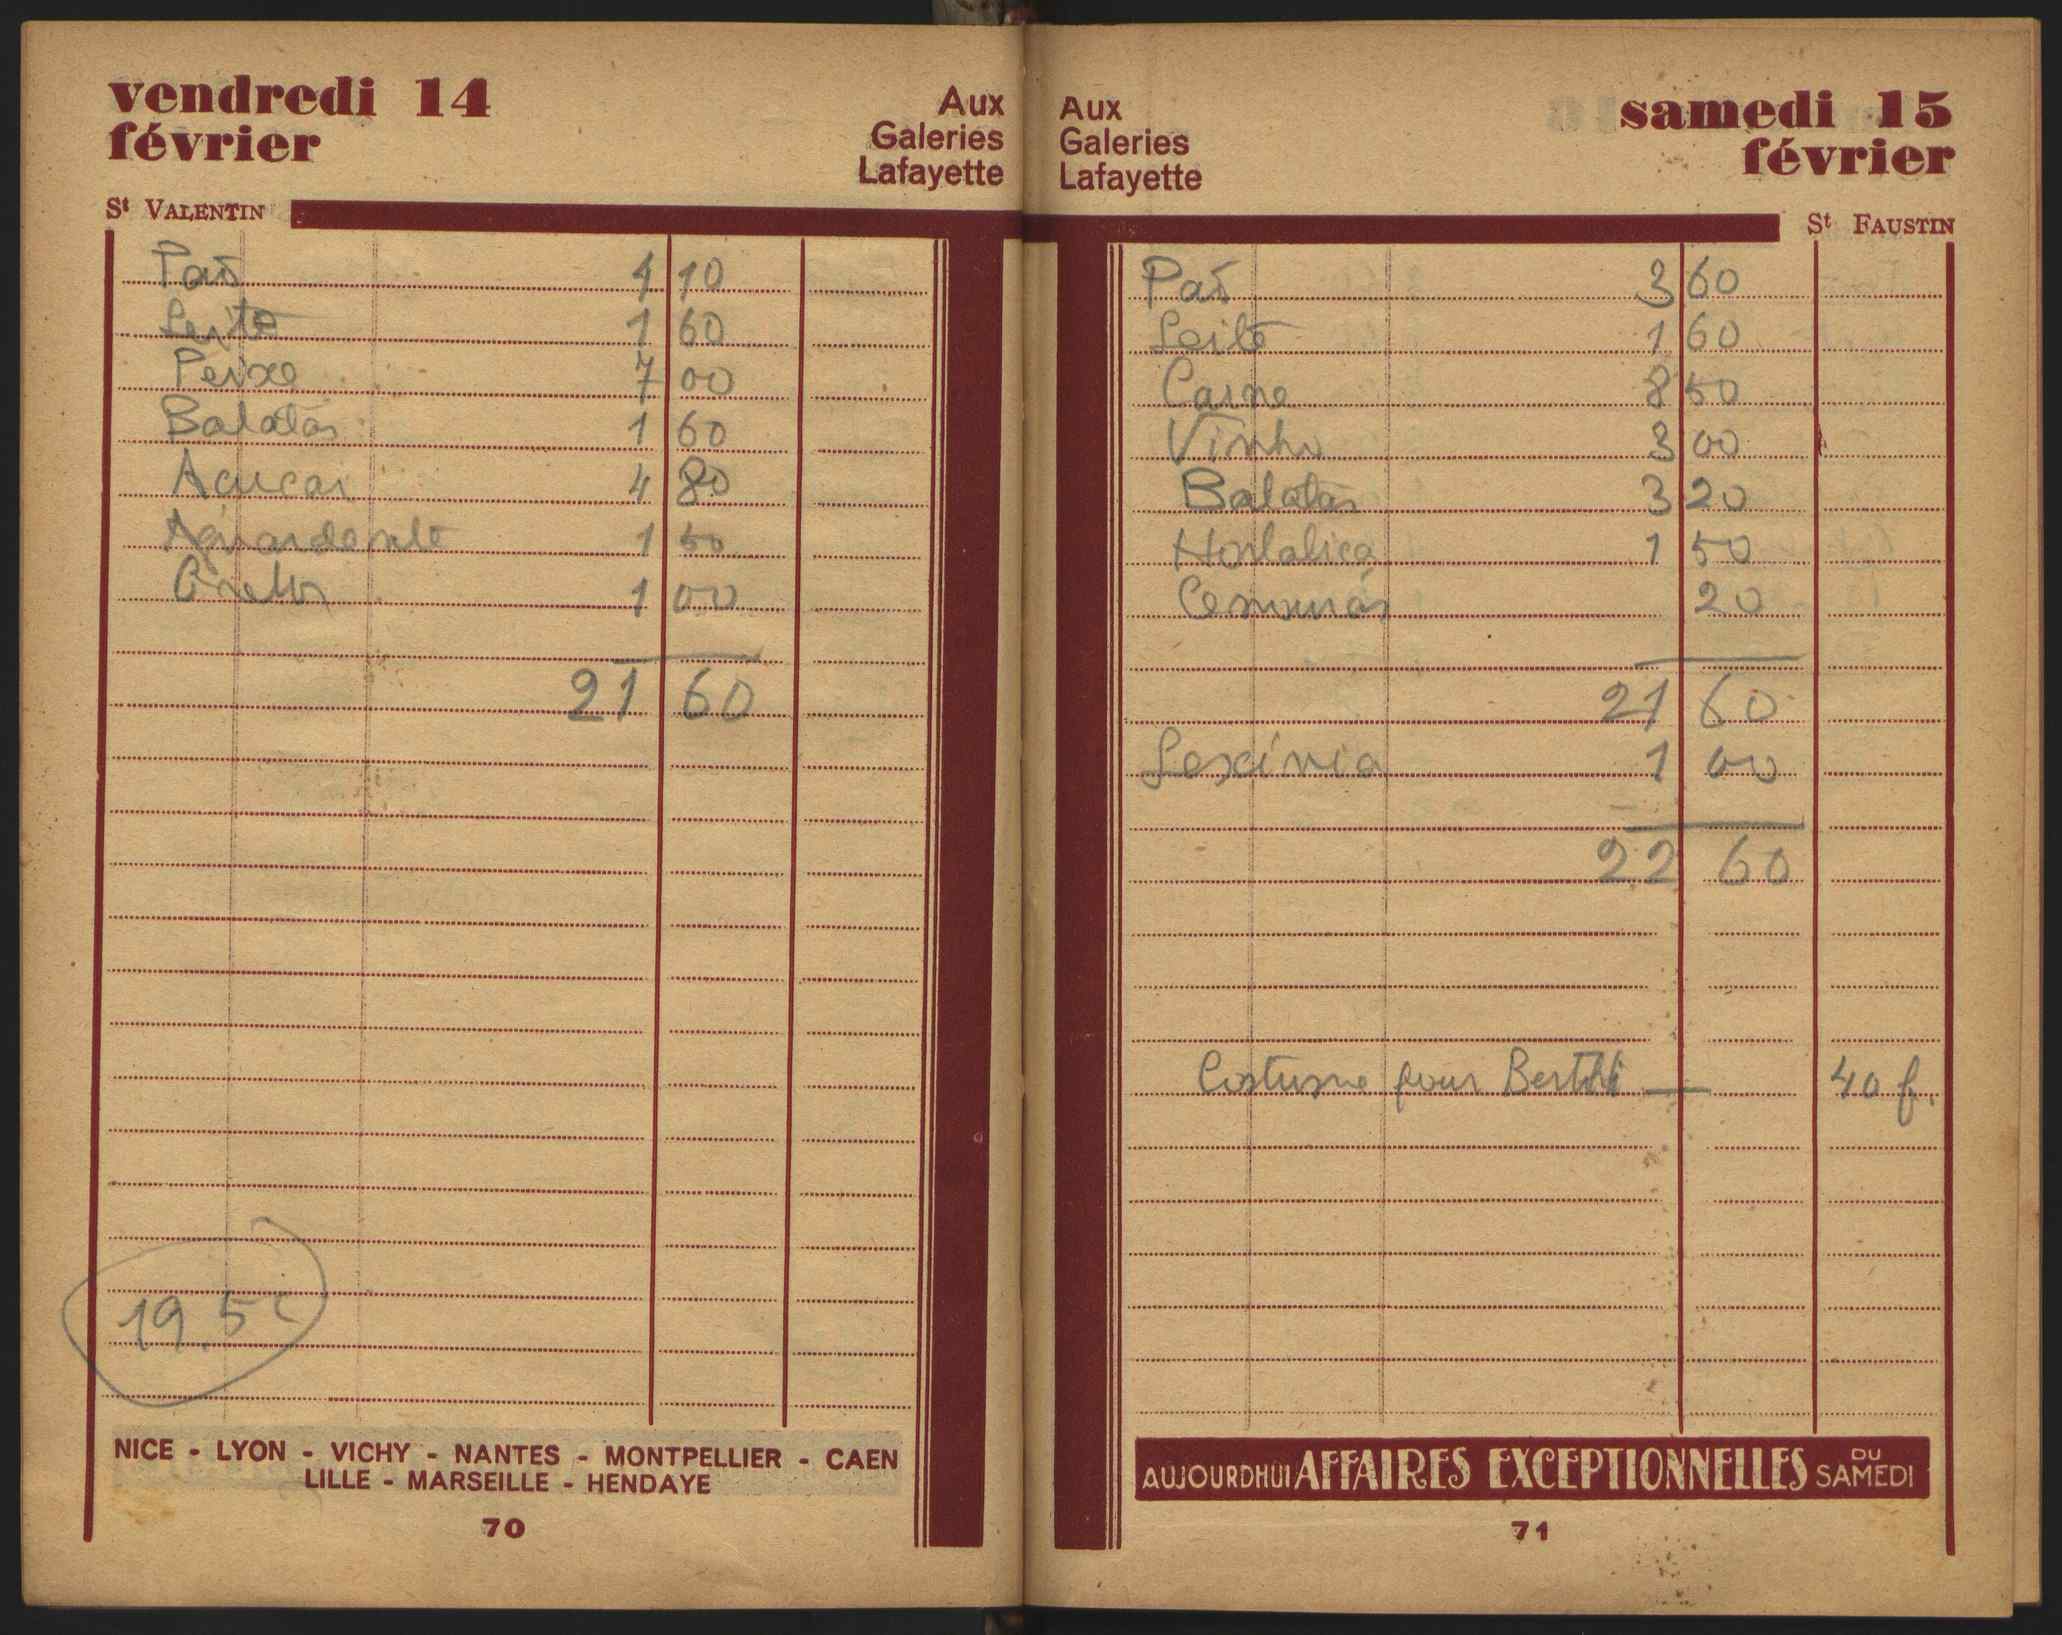 vendredi 14
février
Aux
Galeries
Lafayette
St VALENTIN
Paõ 4 10
Leite 1 60
Peixe 7 00
Batatas 1 60
Açucar 4 80
Aguardente 1 50
1 00
21 60
19.5
NICE - LYON - VICHY - NANTES - MONTPELLIER - CAEN
LILLE - MARSEILLE - HENDAYE
70
Aux
Galeries
Lafayette
samedi 15
février
St FAUSTIN
Paõ 3 60
Leite 1 60
Carne 8 50
Vinho 3 00
Batatas 3 20
Hortaliça 1 50
Cenouras 20
21 60
Lexívia 1 00
22 60
Costume pour — 40 f.
AUJOURDHUI AFFAIRES EXCEPTIONNELLES DU SAMEDI
71